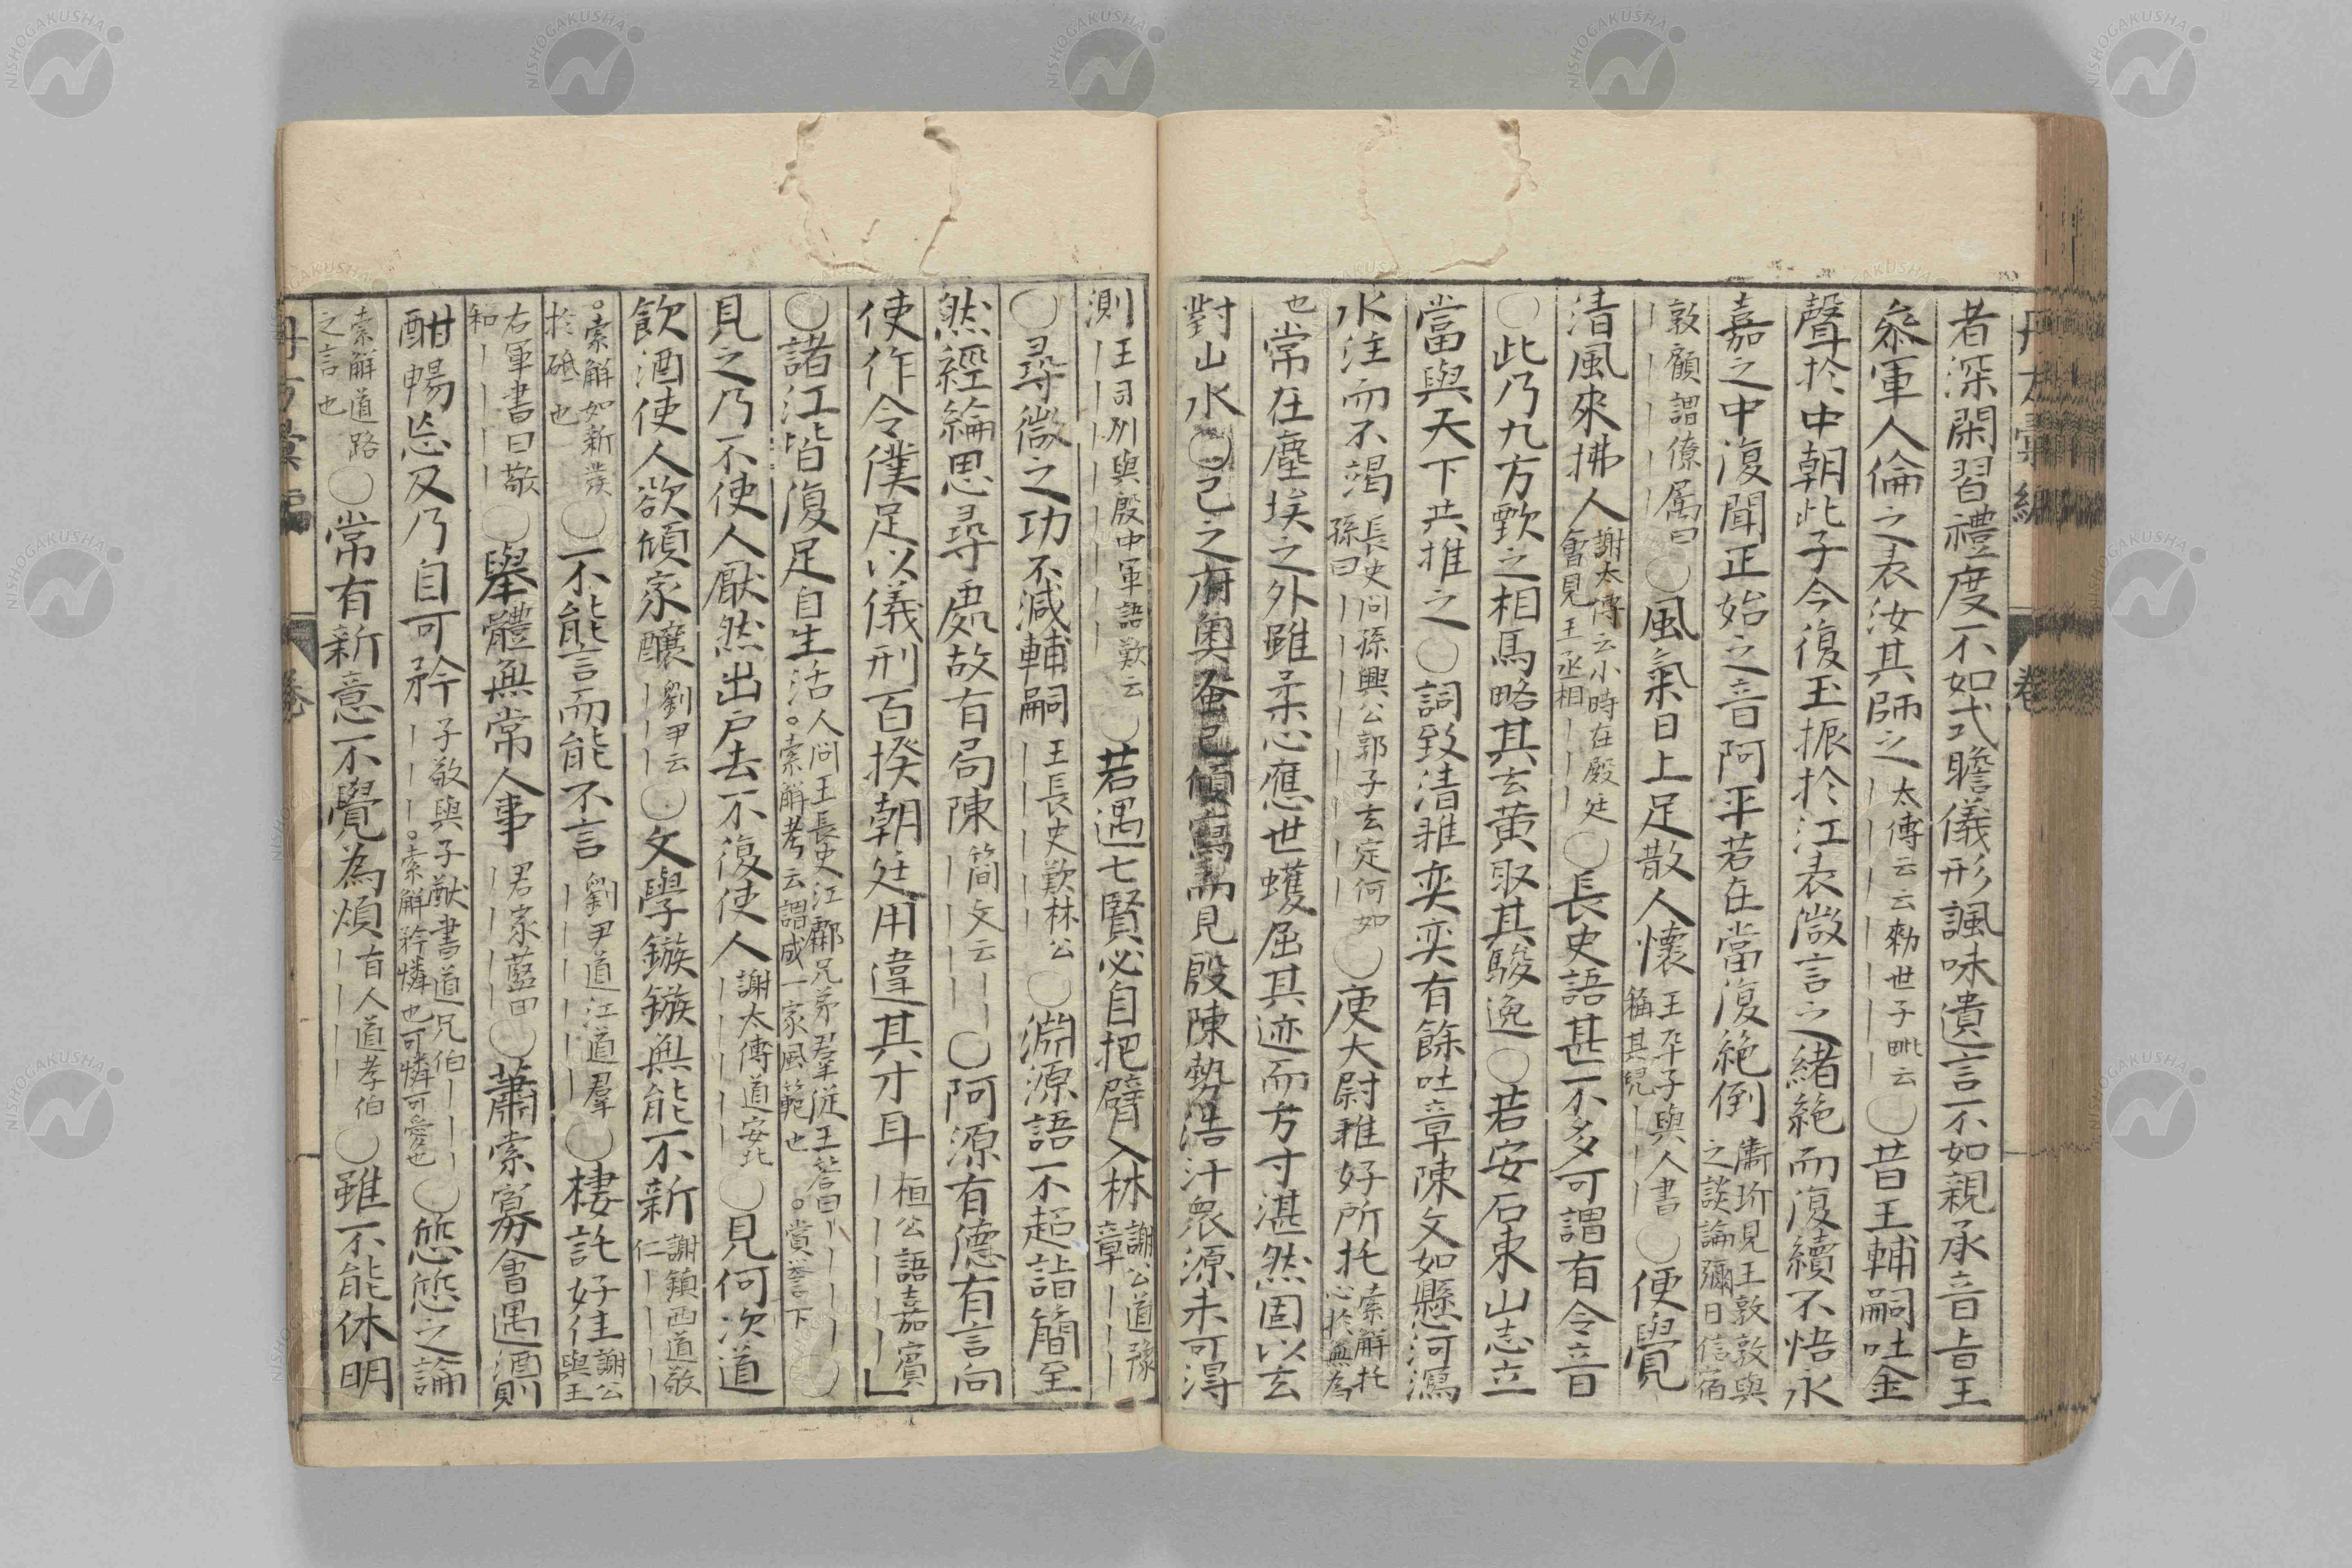 者深閑習禮度不如式瞻儀形諷味遺言不如親承音旨王
叅軍人倫之表汝其師之太傅云云勑世子毗云｜｜｜｜｜｜｜〇昔王輔嗣吐金
聲於中朝此子今復玉振於江表微言之緒絶而復續不悟永
嘉之中復聞正始之音阿平若在當復絶倒衛玠見王敦敦與之談論彌日信宿
敦顧謂僚属曰｜｜｜｜｜〇風氣日上足散人懷王平子與人書稱其兒｜｜｜〇便覺
清風來拂人謝太傅云小時在殿廷會見王丞相｜｜｜〇長史語甚不多可謂有令音
〇此乃九方甄之相馬略其玄黄取其駿逸〇若安石東山志立
當與天下共推之〇詞致清雅奕奕有餘吐章陳文如懸河瀉
水注而不竭長史問孫興公郭子玄定何如孫曰｜｜｜｜｜〇庾大尉雅好所托索解托心於無為
也常在塵埃之外雖柔心應世蠖屈其迹而方寸湛然固以玄
對山水〇己之府奥蚤已傾寫而見殷陳勢浩汗衆源未可得
測｜王司州與殷中軍語歎云｜｜｜｜｜｜〇若遇七賢必自把臂入林謝公道豫章｜｜｜
〇尋微之功不減輔嗣王長史歎林公｜｜｜｜〇淵源語不超詣簡至
然經綸思尋處故有局陳簡文云｜｜｜｜〇阿源有德有言向
使作令僕足以儀刑百揆朝廷用違其才耳桓公語嘉賓｜｜｜｜｜」
〇諸江皆復足自生活人問王長史江虨兄弟羣從王荅曰｜｜｜｜。索解考云謂成一家風範也。賞譽下〇
見之乃不使人厭然出戶去不復使人謝太傅道安北｜｜｜｜｜〇見何次道
飲酒使人欲傾家釀劉尹云｜｜｜〇文學鏃鏃無能不新謝鎮西道敬仁｜｜｜｜
。索解如新發於砥也〇不能言而能不言劉尹道江道羣｜｜｜｜｜〇棲託好佳謝公與王
右軍書曰敬和｜｜｜｜〇舉體無常人事君家藍田｜｜｜〇蕭索寡會遇酒則
酣暢忘反乃自可矜子敬與子猷書道兄伯｜｜｜｜｜｜。索解矜憐也可憐可愛也〇亹亹之論
索解道路之言也〇常有新意不覺為煩有人道孝伯｜｜｜｜〇雖不能休明